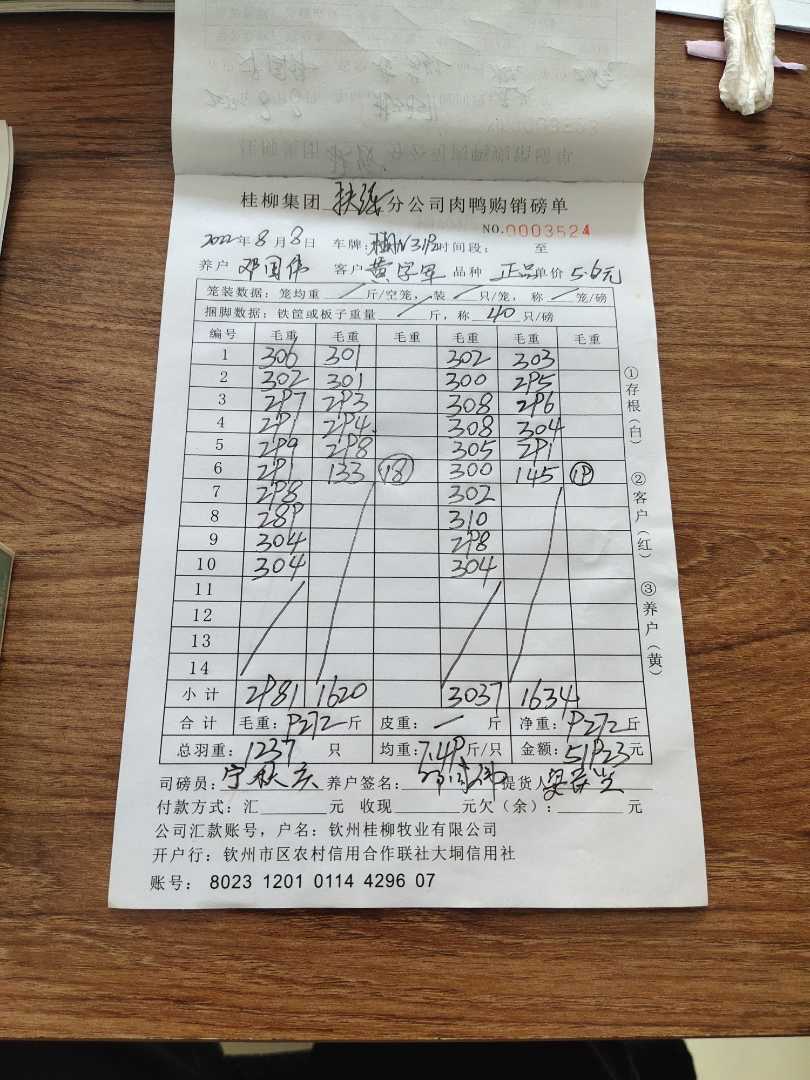 桂柳集团 扶绥 分公司肉鸭购销磅单
NO.0003524
2022年8月8日 车牌: 时间段: 至
养户 邓国伟 客户 黄字军 品种 正品 单价 5.6元
笼装数据: 笼均重 / 斤/空笼, 装 / 只/笼, 称 / 笼/磅
捆脚数据: 铁筐或板子重量 / 斤, 称 40 只/磅
编号 毛重 毛重 毛重 毛重 毛重 毛重
1 306 301 302 303
2 302 301 300 295
3 297 293 308 296
4 291 294 308 304
5 299 298 305 291
6 291 133 18 300 145 19
7 298 302
8 289 310
9 304 298
10 304 304
11
12
13
14
小计 2981 1620 3037 1634
合计 毛重: 9272 斤 皮重: / 斤 净重: 9272 斤
总羽重: 1237 只 均重: 7.49 斤/只 金额: 51923 元
司磅员: 宁秋庆 养户签名: 邓国伟 提货人
付款方式: 汇______元 收现______元欠(余): ______元
公司汇款账号, 户名: 钦州桂柳牧业有限公司
开户行: 钦州市区农村信用合作联社大垌信用社
账号: 8023 1201 0114 4296 07
①存根(白) ②客户(红) ③养户(黄)